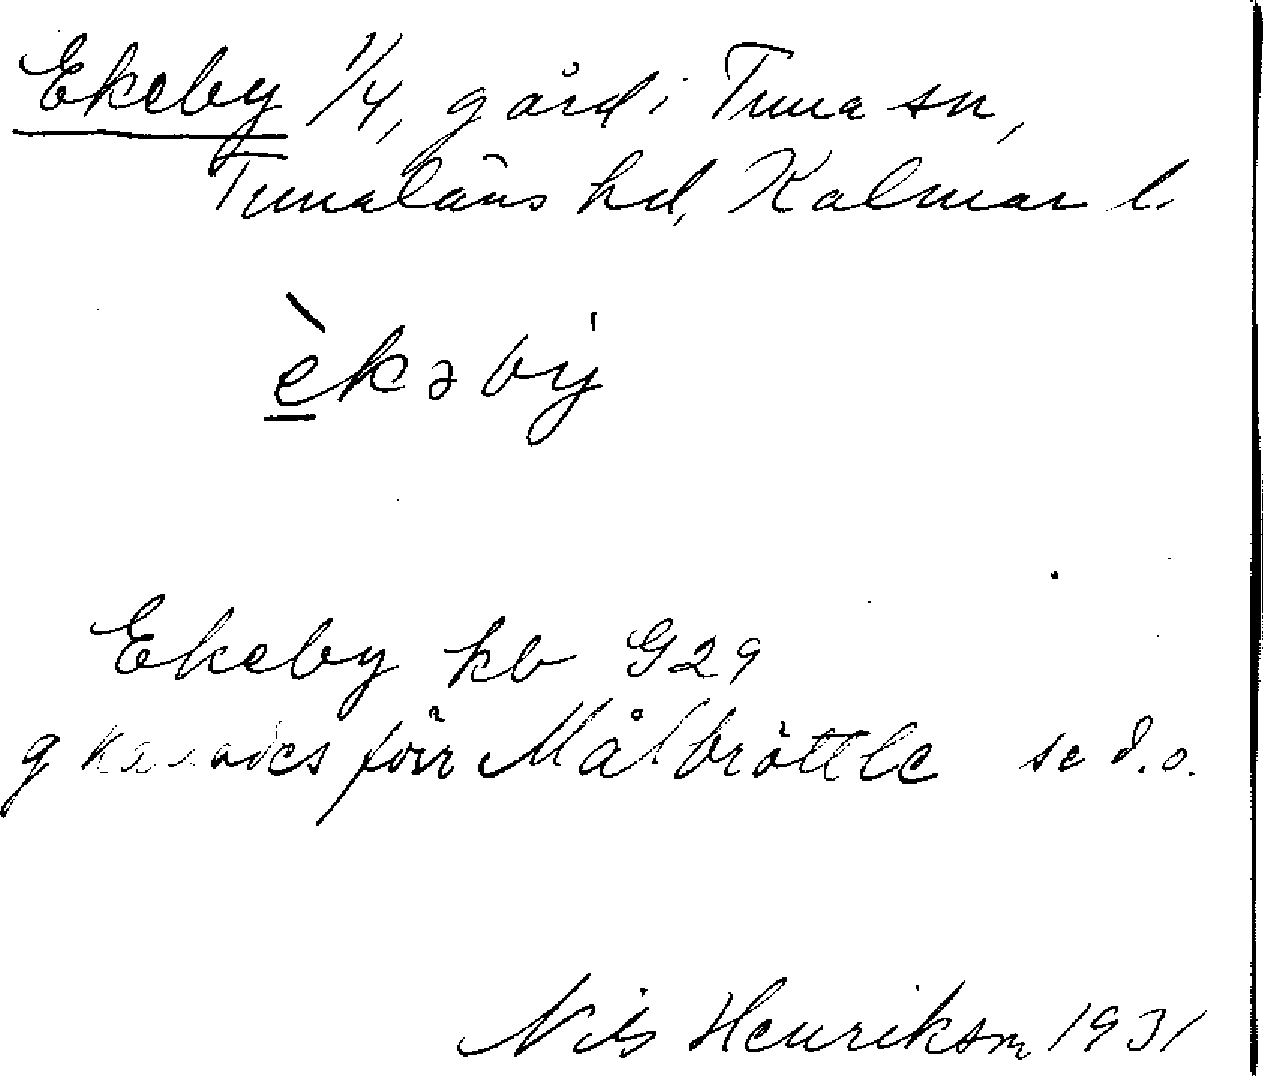 Ekeby 1/4, gård i Tuna sn,
Tunaläns hd, Kalmar l.
èkəbý
Ekeby kb G29
g kallades förr Målbröttle se d.o.
Nils Henriksm 1931